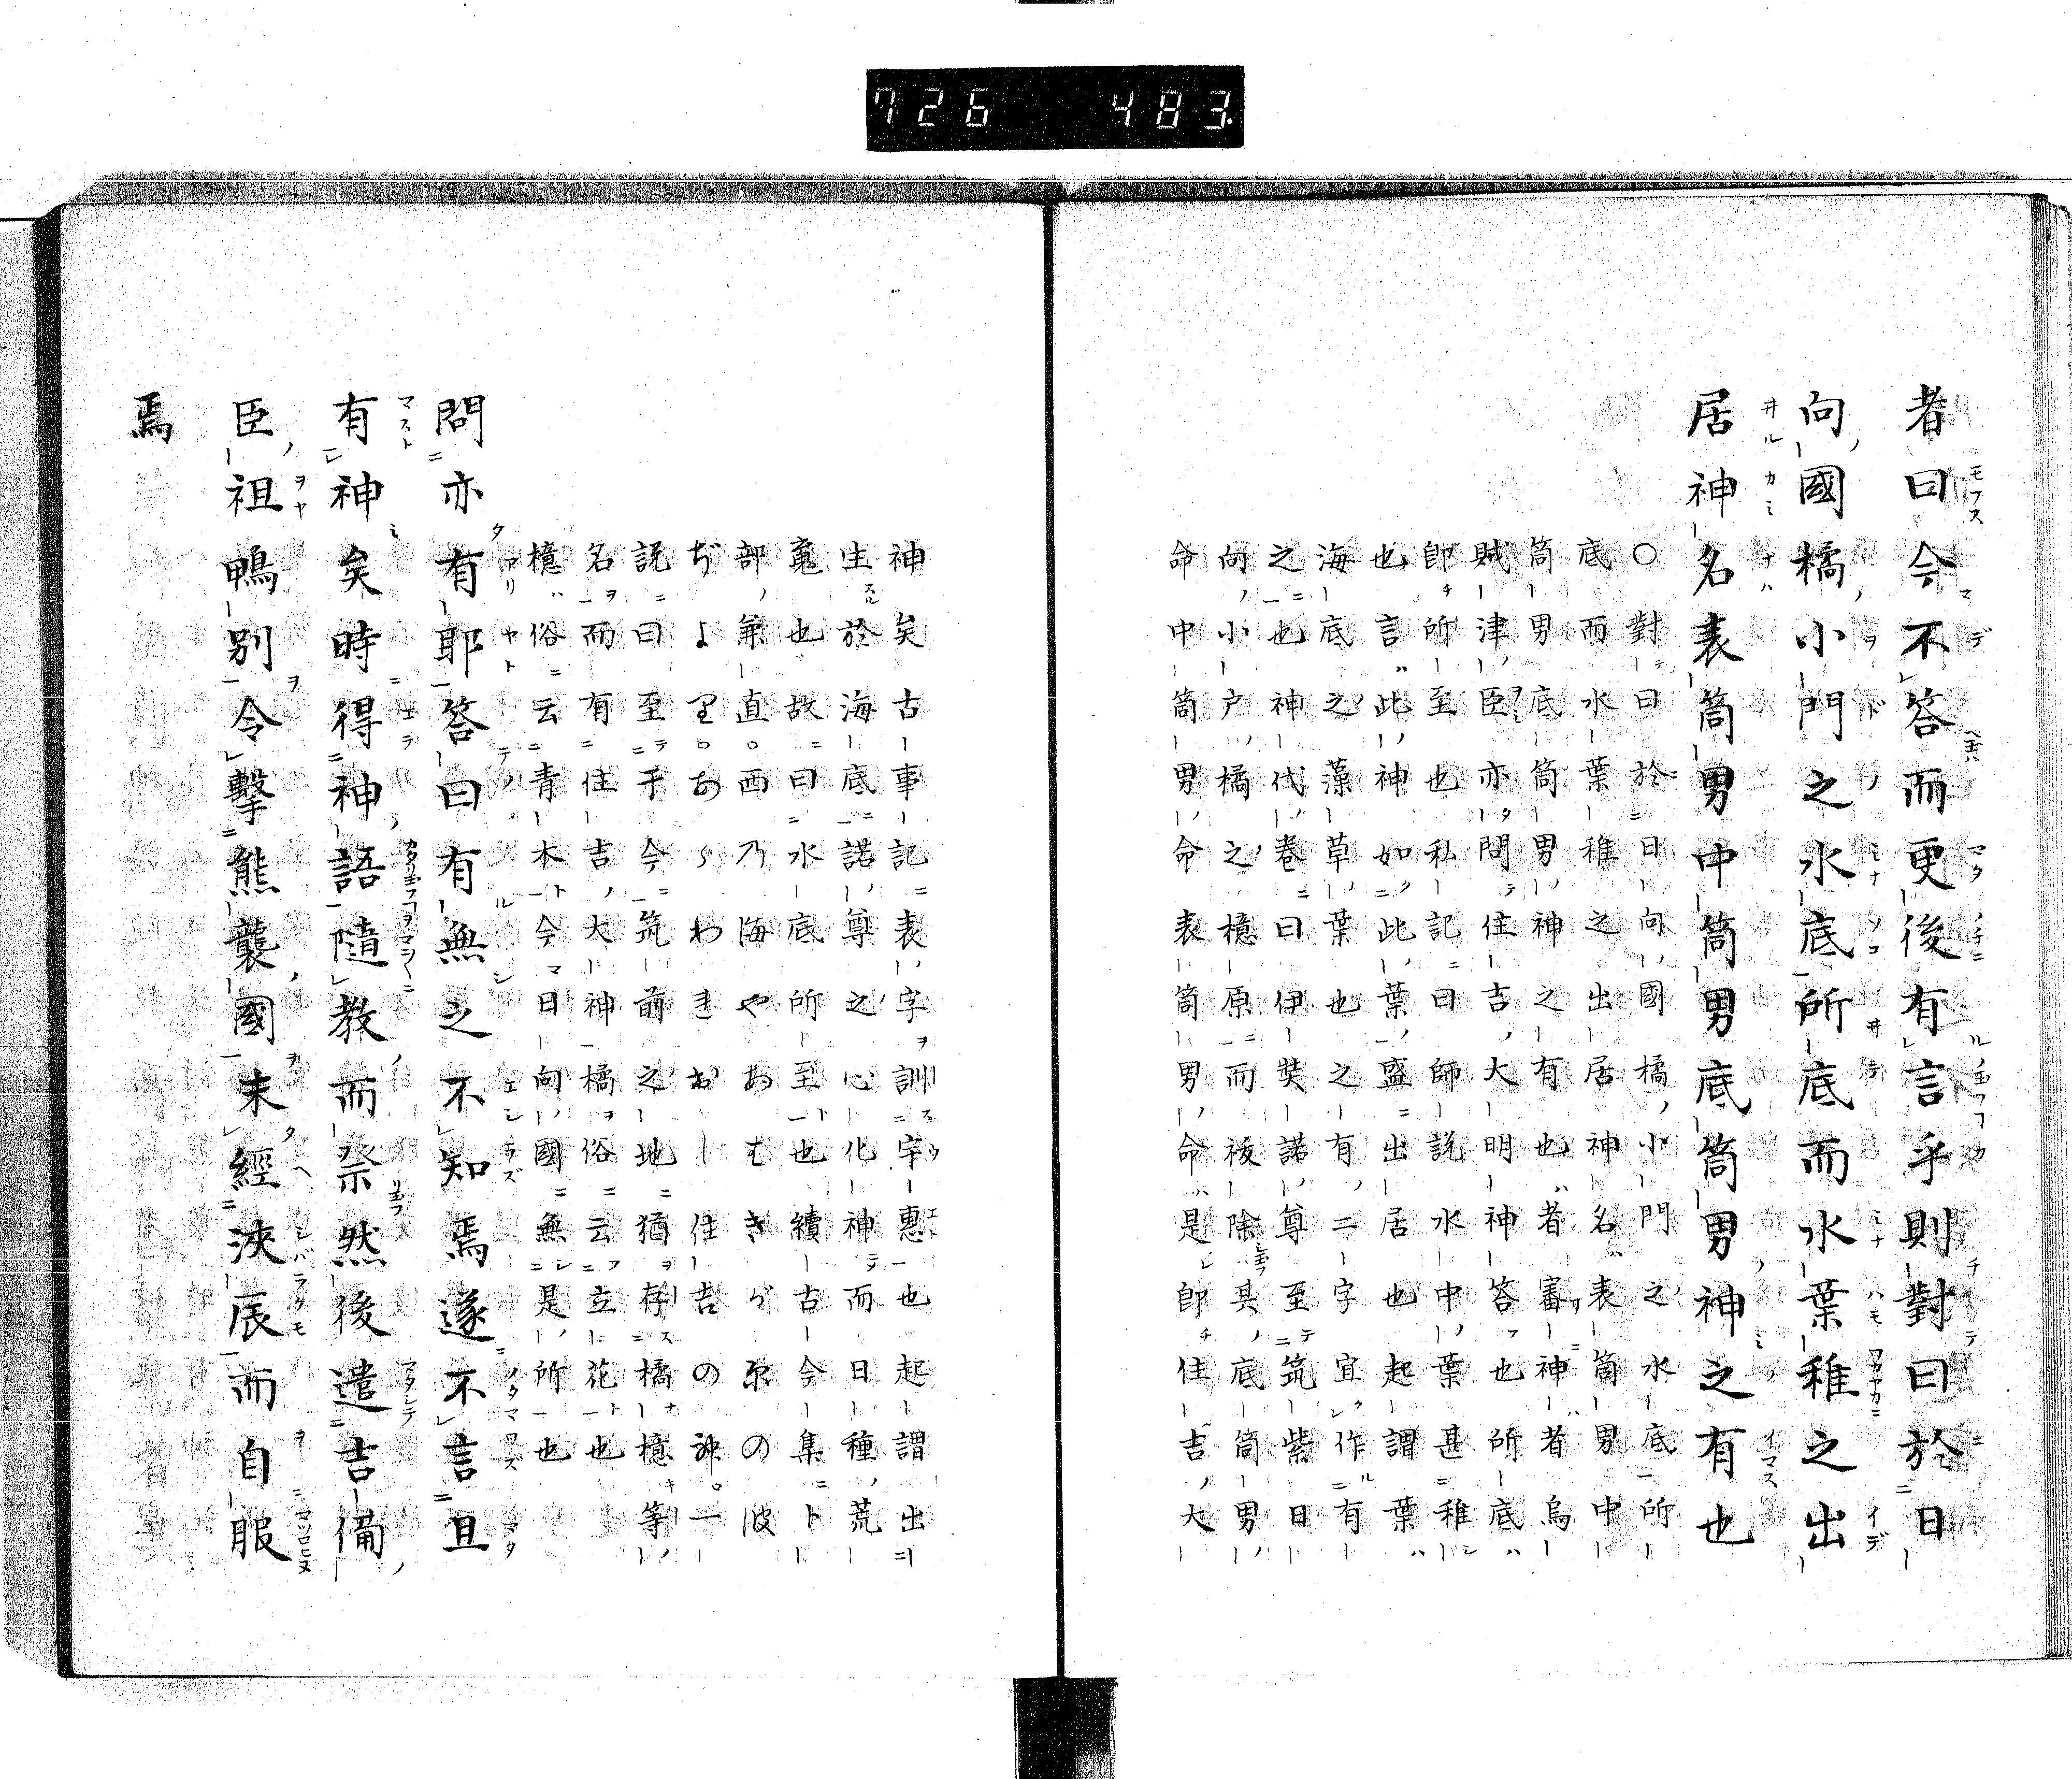 726 483
者曰今不答而更後有言乎則對曰於日
向國橘小門之水底所底而水葉稚之出
居神名表筒男中筒男底筒男神之有也
〇對曰於日向國橘小門之水底所
底而水葉稚之出居神名表筒男中
筒男底筒男神之有也者審神者烏
賊津臣亦問住吉大明神答也所底
即所至也私記曰師說水中葉甚稚
也言此神如此葉盛出居也起謂葉
海底之藻草葉也之有二字宜作有
之也神代卷曰伊奘諾尊至筑紫日
向小戸橘之檍原而祓除其底筒男
命中筒男命表筒男命是即住吉大
神矣古事記表字訓宇惠也起謂出
生於海底諾尊之心化神而日種荒
竃也故曰水底所至也續古今集卜
部兼直西乃海やあむきが原の波
ぢよりあらわきおし住吉の神一
説曰至于今筑前之地猶存橘檍等
名而有住吉大神橘俗云立花也
檍俗云青木今日向國無是所也
問亦有耶答曰有無之不知焉遂不言且
有神矣時得神語隨教而祭然後遣吉備
臣祖鴨別令擊熊襲國未經浹辰而自服
焉